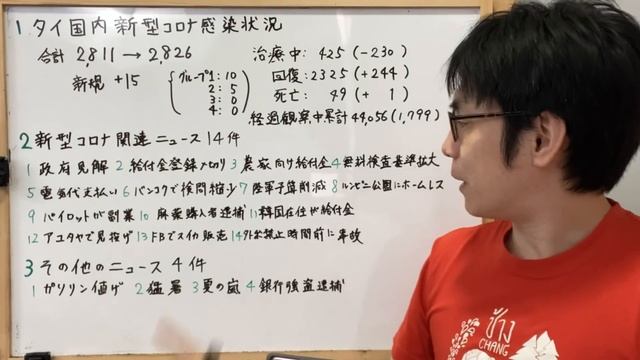 1 タイ国内新型コロナ感染状況
合計 2,811 → 2,826
新規 +15
グループ1: 10
2: 5
3: 0
4: 0
治療中: 425 (-230)
回復: 2325 (+244)
死亡: 49 (+ 1)
経過観察中累計 44,056 (1,799)
2 新型コロナ関連ニュース 14件
1 政府見解 2 給付金登録〆切り 3 農家向け給付金 4 無料検査基準拡大
5 電気代支払い 6 バンコクで検問縮少 7 陸軍予算削減 8 ルンピニ公園にホームレス
9 パイロットが副業 10 麻薬購入者逮捕 11 韓国在住が給付金
12 アユタヤで見投げ 13 FBでスイカ販売 14 外出禁止時間前に事故
3 その他のニュース 4件
1 ガソリン値下げ 2 猛暑 3 夏の嵐 4 銀行強盗逮捕
ช้าง
CHANG